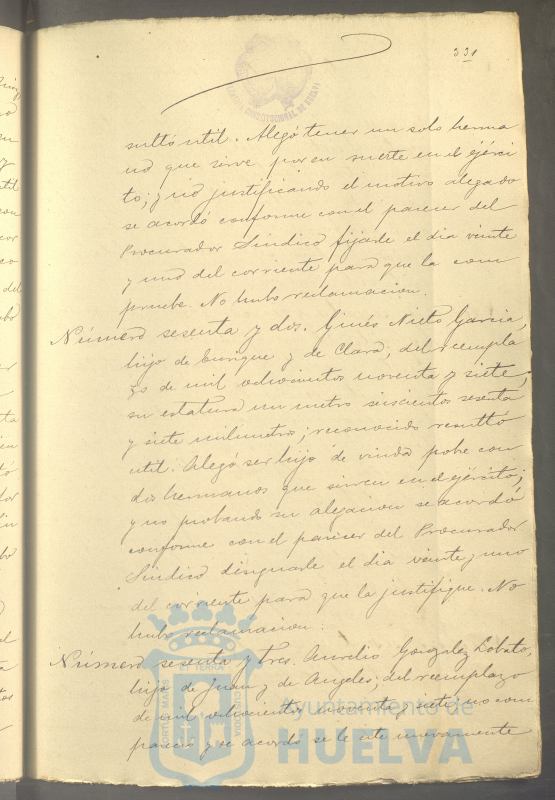 331
sultó util. Alegó tener un solo herma
no que sirve por en suerte en el ejérci
to; y no justificando el motivo alegado
se acordó conforme con el parecer del
Procurador Sindico fijarle el dia veinte
y uno del corriente para que la com
pruebe. No hubo reclamacion.
Número sesenta y dos. Ginés Nieto Garcia,
hijo de Enrique y de Clara; del reempla
zo de mil ochocientos noventa y siete;
su estatura un metro seiscientos sesenta
y siete milimetros; reconocido resultó
util. Alegó ser hijo de viuda pobre con
dos hermanos que sirven en el ejército;
y no probando su alegacion se acordó
conforme con el parecer del Procurador
Sindico designarle el dia veinte y uno
del corriente para que la justifique. No
hubo reclamacion.
Número sesenta y tres. Aurelio Gonzalez Lobato,
hijo de Juan y de Angeles; del reemplazo
de mil ochocientos noventa y siete; no com
pareció y se acordó se le cite nuevamente
Ayuntamiento de
HUELVA